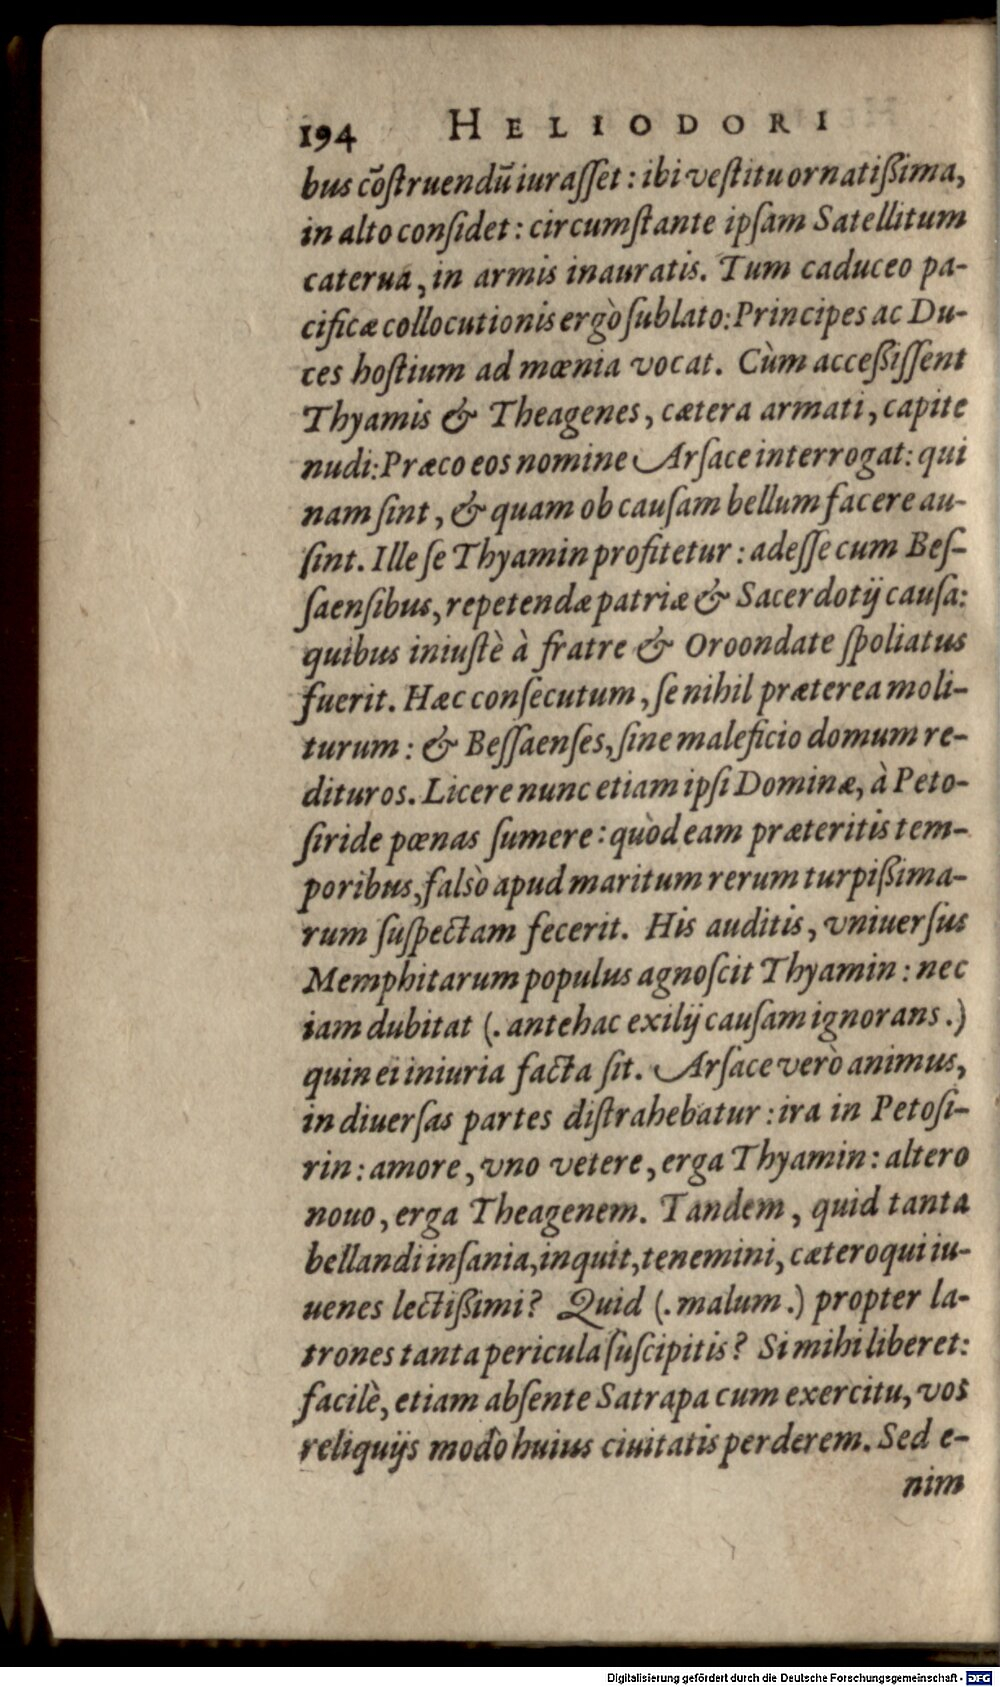 194 HELIODORI
bus cõſtruendũ iuraſſet : ibi veſtitu ornatißima,
in alto conſidet : circumſtante ipſam Satellitum
caterua, in armis inauratis. Tum caduceo pa-
cificæ collocutionis ergò ſublato: Principes ac Du-
ces hoſtium ad mœnia vocat. Cùm acceßiſſent
Thyamis & Theagenes, cætera armati, capite
nudi: Præco eos nomine Arſace interrogat: qui
nam ſint, & quam ob cauſam bellum facere au-
ſint. Ille ſe Thyamin profitetur : adeſſe cum Beſ-
ſaenſibus, repetendæ patriæ & Sacerdotij cauſa:
quibus iniuſtè à fratre & Oroondate ſpoliatus
fuerit. Hæc conſecutum, ſe nihil præterea moli-
turum : & Beſſaenſes, ſine maleficio domum re-
dituros. Licere nunc etiam ipſi Dominæ, à Peto-
ſiride pœnas ſumere : quòd eam præteritis tem-
poribus, falsò apud maritum rerum turpißima-
rum ſuſpectam fecerit. His auditis, vniuerſus
Memphitarum populus agnoſcit Thyamin : nec
iam dubitat (. antehac exilij cauſam ignorans .)
quin ei iniuria facta ſit. Arſace verò animus,
in diuerſas partes diſtrahebatur : ira in Petoſi-
rin : amore, vno vetere, erga Thyamin : altero
nouo, erga Theagenem. Tandem, quid tanta
bellandi inſania, inquit, tenemini, cæteroqui iu-
uenes lectißimi? Quid (. malum .) propter la-
trones tanta pericula ſuſcipitis? Si mihi liberet:
facilè, etiam abſente Satrapa cum exercitu, vos
reliquijs modò huius ciuitatis perderem. Sed e-
nim
Digitalisierung gefördert durch die Deutsche Forschungsgemeinschaft - DFG